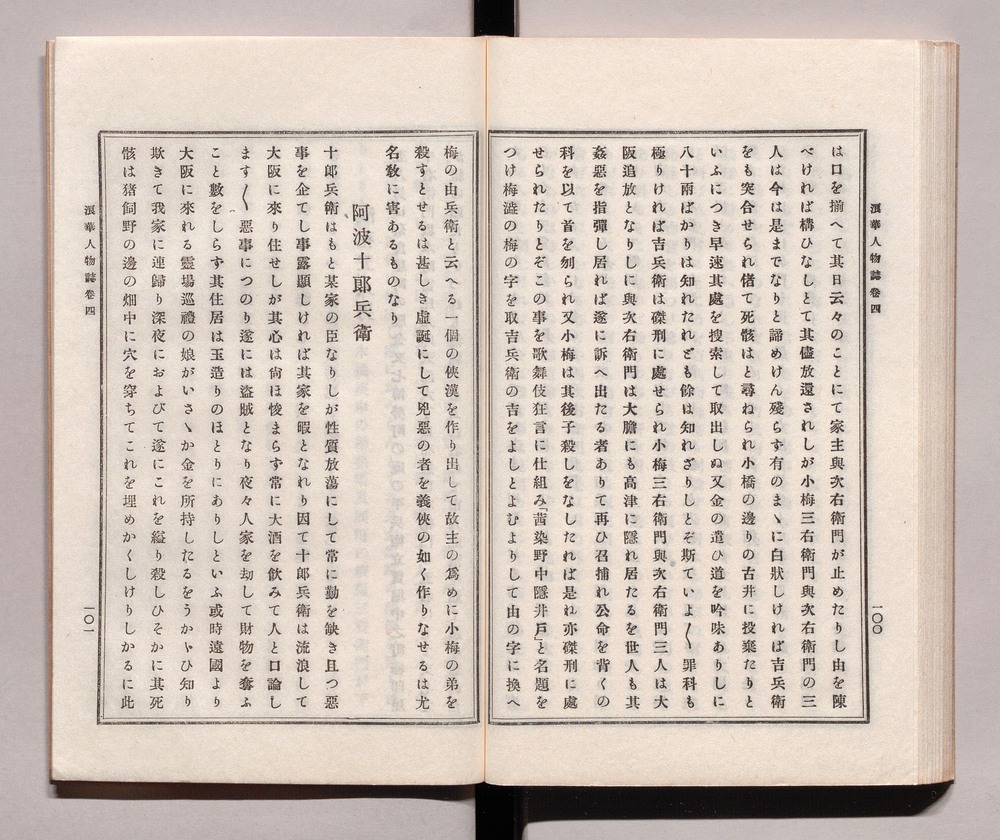 浪華人物誌卷四
一〇〇
は口を揃へて其日云々のことにて家主與次右衞門が止めたりし由を陳
べければ構ひなしとて其儘放還されしが小梅三右衞門與次右衞門の三
人は今は是までなりと諦めけん殘らず有のまゝに白狀しければ吉兵衞
をも突合せられ偖て死骸はと尋ねられ小橋の邊りの古井に投棄たりと
いふにつき早速其處を搜索して取出しぬ又金の遣ひ道を吟味ありしに
八十兩ばかりは知れたれども餘は知れざりしとぞ斯ていよ〱罪科も
極りければ吉兵衞は磔刑に處せられ小梅三右衞門與次右衞門三人は大
阪追放となりしに與次右衞門は大膽にも高津に隱れ居たるを世人も其
姦惡を指彈し居れば遂に訴へ出たる者ありて再ひ召捕れ公命を背くの
科を以て首を刎られ又小梅は其後子殺しをなしたれば是れ亦磔刑に處
せられたりとぞこの事を歌舞伎狂言に仕組み「茜染野中隱井戶」と名題を
つけ梅澁の梅の字を取吉兵衞の吉をよしとよむよりして由の字に換へ
梅の由兵衞と云へる一個の俠漢を作り出して故主の爲めに小梅の弟を
殺すとせるは甚しき虛誕にして兇惡の者を義俠の如く作りなせるは尤
名敎に害あるものなり
阿波十郞兵衞
十郞兵衞はもと某家の臣なりしが性質放蕩にして常に勤を缺き且つ惡
事を企てし事露顯しければ其家を暇となれり因て十郞兵衞は流浪して
大阪に來り住せしが其心は尙ほ悛まらず常に大酒を飮みて人と口論し
ます〱惡事につのり遂には盜賊となり夜々人家を劫して財物を奪ふ
こと數をしらす其住居は玉造りのほとりにありしといふ或時遠國より
大阪に來れる靈場巡禮の娘がいさゝか金を所持したるをうかゝひ知り
欺きて我家に連歸り深夜におよびて遂にこれを縊り殺しひそかに其死
骸は猪飼野の邊の畑中に穴を穿ちてこれを埋めかくしけりしかるに此
浪華人物誌卷四
一〇一